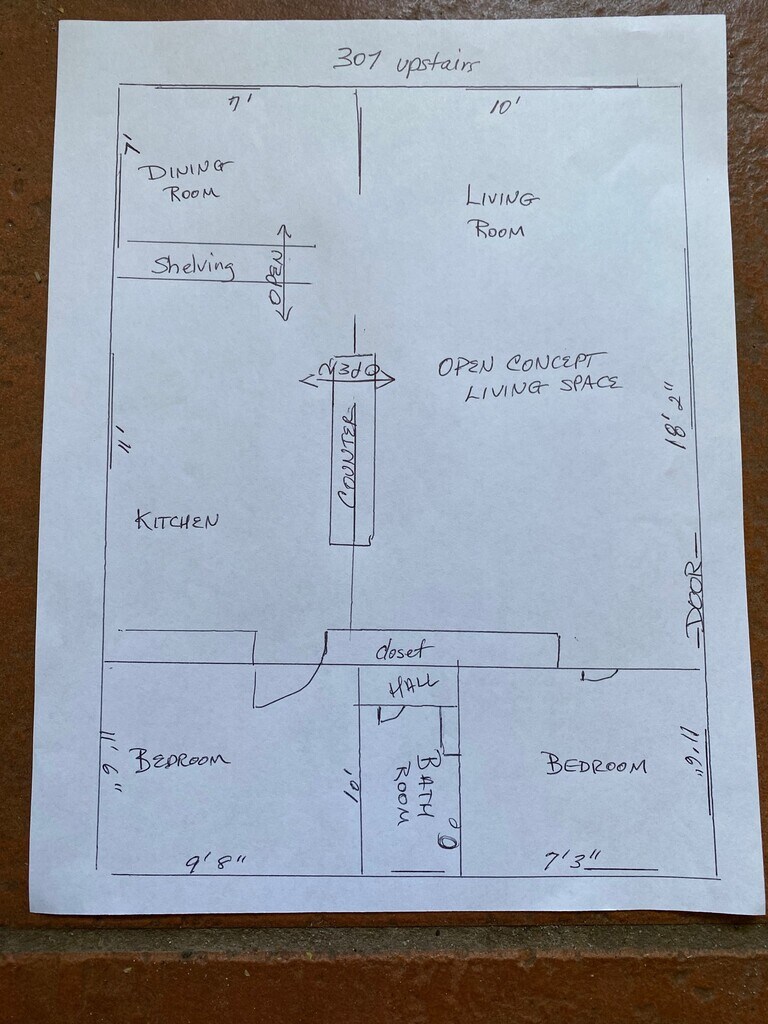 307 upstairs
7'
10'
7'
DINING
ROOM
LIVING
ROOM
Shelving
OPEN
OPEN
OPEN CONCEPT
LIVING SPACE
18' 2"
11'
COUNTER
KITCHEN
DOOR
closet
HALL
11' 6"
BEDROOM
10'
BATH
ROOM
BEDROOM
11' 6"
9' 8"
7' 3"